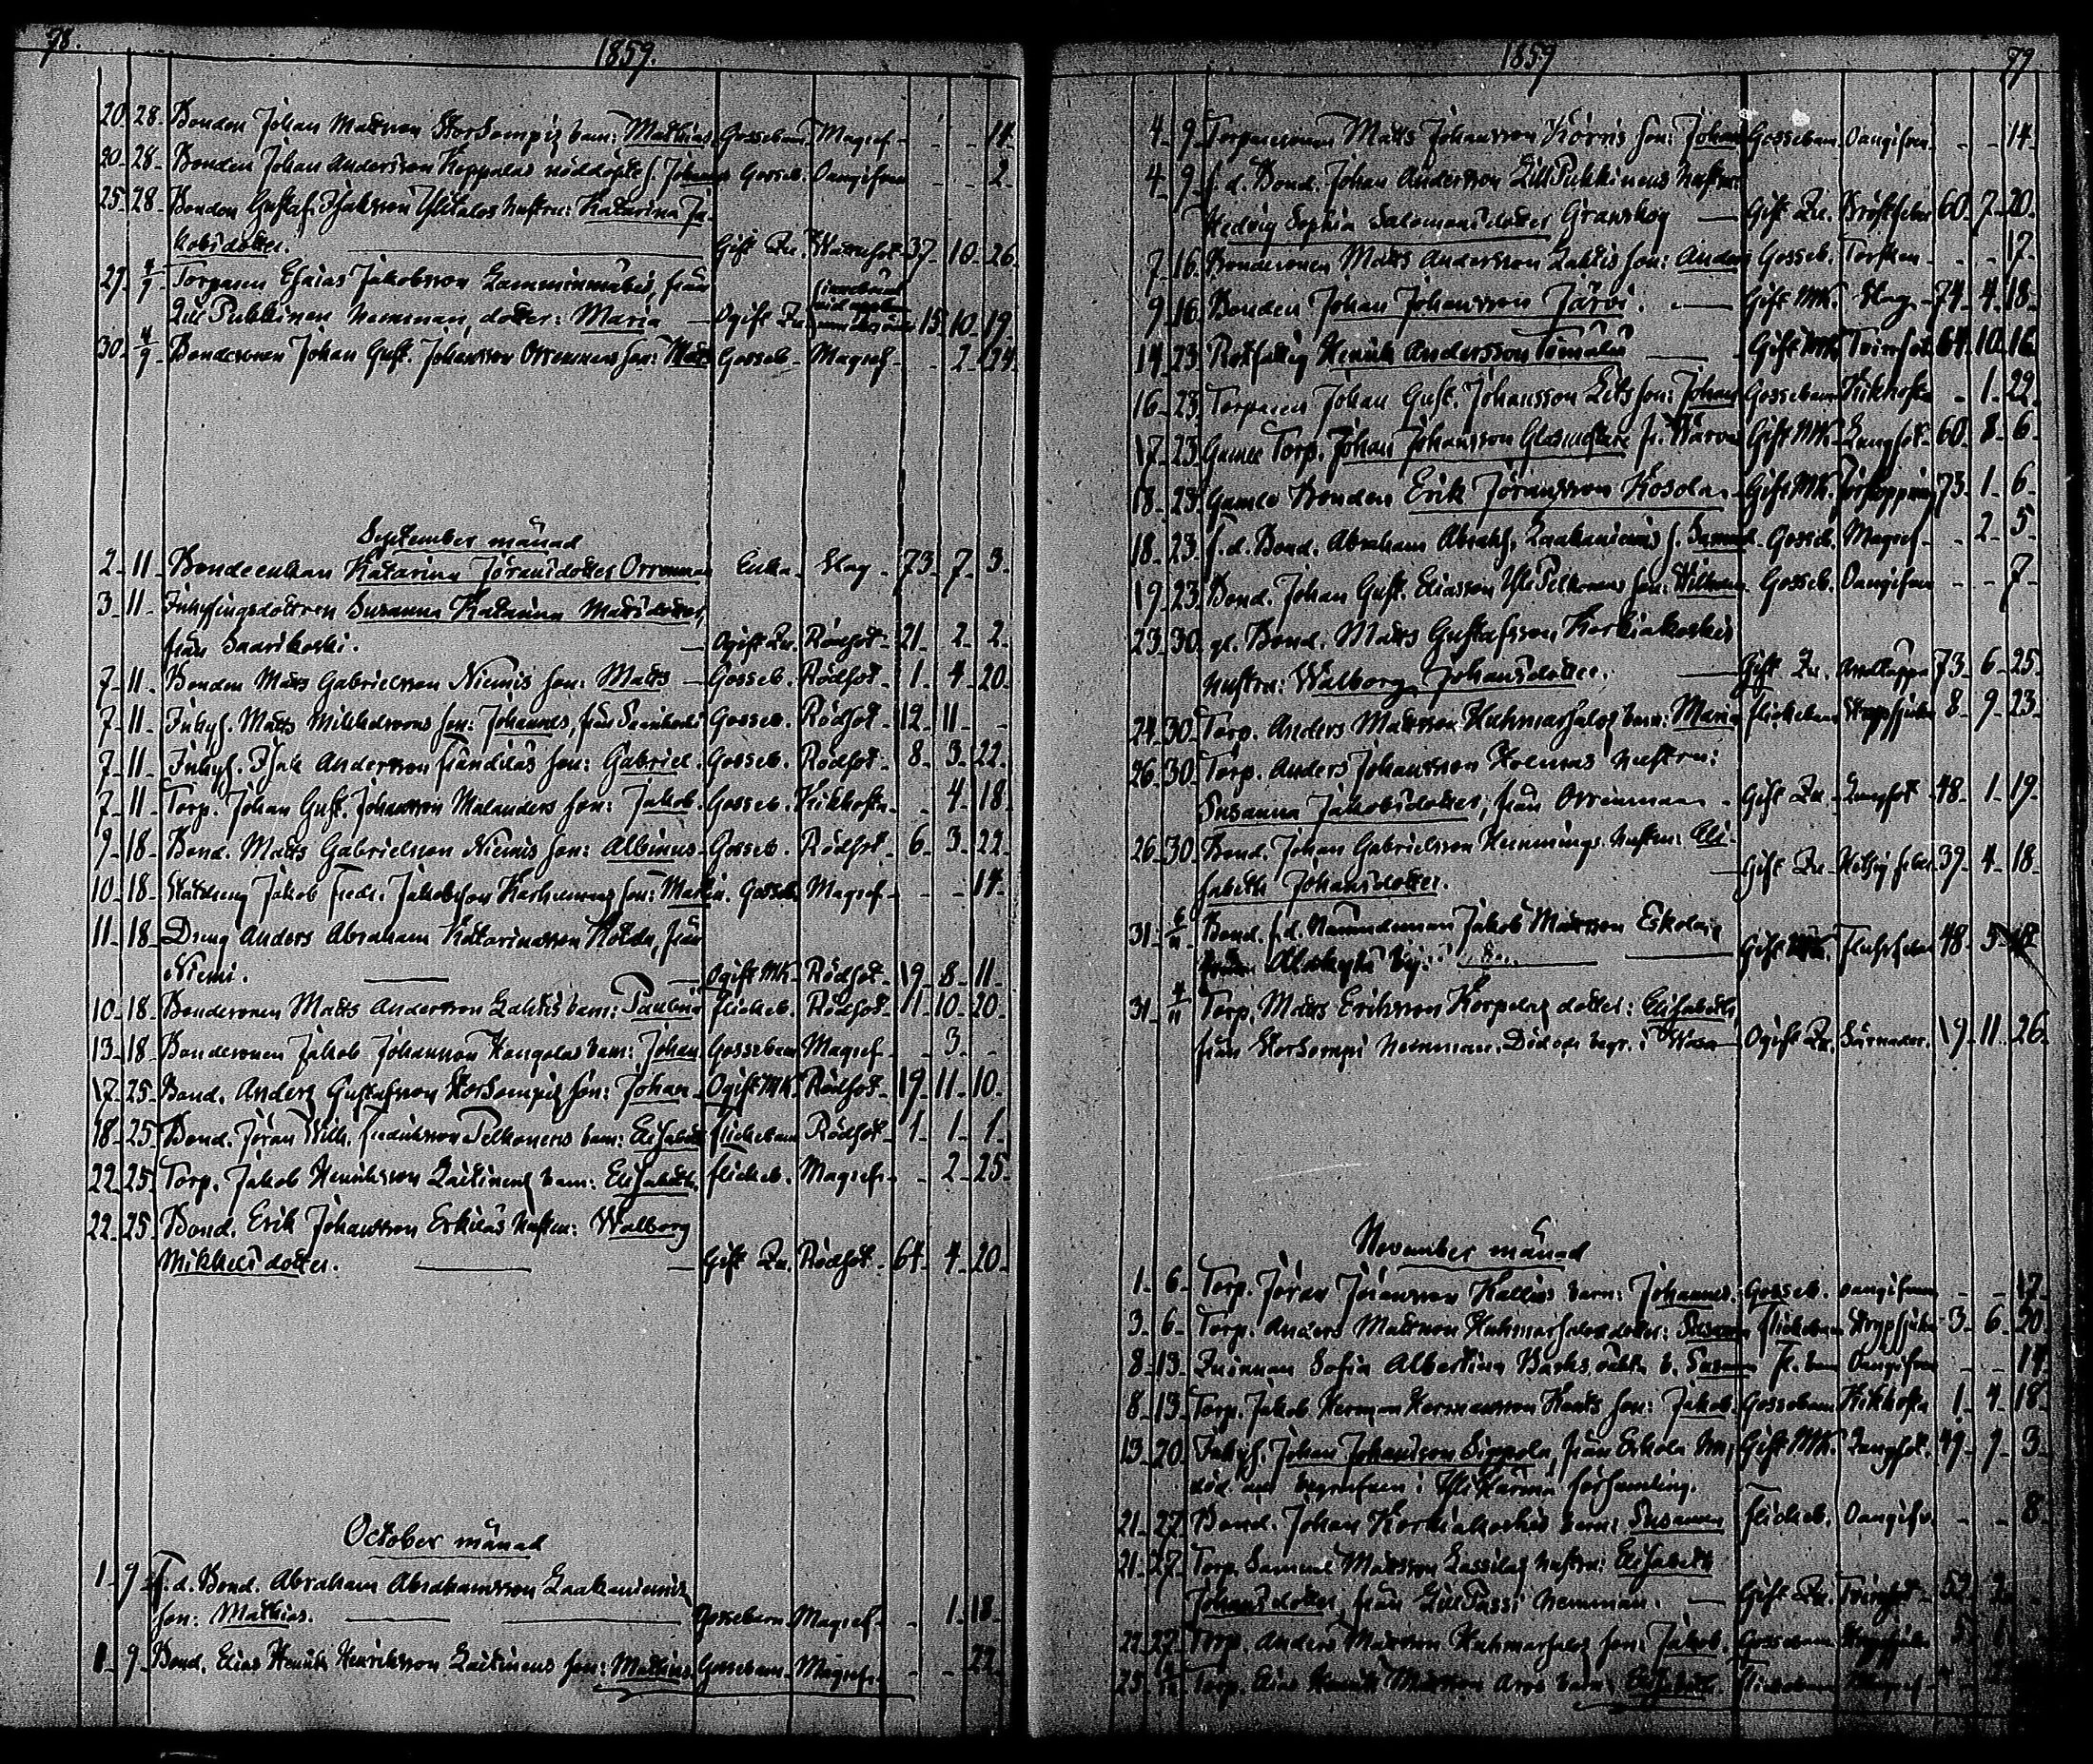 78.
1859.
20. 28. Bonden Johan Mattsson Storsompis barn: Mathias Gossebarn Magref - - - 14.
20. 28. Bonden Johan Andersson Keppolas nöddöpte s. Johannes Gosseb. Oangifven - - 2.
25. 28. Bonden Gustaf Isaksson Ylitalos hustru: Katarina Ja-
kobsdotter. Gift Qu. Wattusot 37. 10. 26.
27. 4/9 Torparen Esaias Jakobsson Lamminmäkis, från
Lill Pukkinen hemman, dotter: Maria Ogift Qu. 15. 10. 19.
30. 4/9 Bondesonen Johan Gust. Johansson Orrenmaas son: Matts Gosseb. Magref. - 2. 24.
September månad
2. 11. Bondeenkan Katarina Jöransdotter Orrenmaa Enka. Slag 73. 7. 3.
3. 11. Inhysingsdottren Susanna Katarina Mattsdotter,
från Saarikoski. Ogift Qu. Rödsot. 21. 2. 2.
7. 11. Bonden Matts Gabrielsson Niemis son: Matts Gosseb. Rödsot. 1. 4. 20.
7. 11. Inhys. Matts Mikkelssons son: Johannes, från Saarikoski Gosseb. Rödsot. 12. 11. -
7. 11. Inhys. Isak Andersson son: Gabriel. Gosseb. Rödsot. 8. 3. 22.
7. 11. Torp. Johan Gust. Johansson Malanders son: Jakob. Gosseb. Kikhosta - 4. 18.
9. 18. Bond. Matts Gabrielsson Niemis son: Albinus. Gosseb. Rödsot. 6. 3. 22.
10. 18. Jakob Fredr. Jakobsson Karhumaas son: Gosseb. Magref. - - 14.
11. 18. Dreng Anders Abraham Katarinasson från
Niemi. Ogift MK. Rödsot. 19. 8. 11.
10. 18. Bondesonen Matts Andersson Lahtis barn: Paulina flickeb. Rödsot. 11. 10. 20.
13. 18. Bondesonen Jakob Johansson Kangolas barn: Johan Gossebarn Magref. - 3. -
17. 25. Bond. Anders Gustafsson Storsompis son: Johan Ogift MK. Rödsot. 19. 11. 10.
18. 25. Bond. Jöran Wilh. Fredriksson Pelkonens barn: Elisabeth flickebarn Rödsot. 1. 1. 1.
22. 25. Torp. Jakob Henriksson Laitinens barn: Elisabeth. flickeb. Magref. - 2. 25.
22. 25. Bond. Erik Johansson Erkiläs hustru: Walborg
Mikkelsdotter. Gift Qu. Rödsot. 64. 4. 20.
October månad
1. 9. F.d. Bond. Abraham Abrahamsson Laakaniemis
son: Mathias. Gossebarn Magref. - 1. 18.
1. 9. Bond. Elias Henrik Henriksson Laitinens son: Mathias Gossebarn Magref. - - 22.
1859
79
4. 9. Torparesonen Matts Johansson son: Johan Gossebarn Oangifven - - 14.
4. 9. f.d. Bond. Johan Andersson Lill Pukkinens hustru:
Hedvig Sophia Salomonsdotter Granskog Gift Qu. Bröstfeber 60. 7. 20.
7. 16. Bondesonen Matts Andersson Lahtis son: Anders Gosseb. Torsken - - 17.
9. 16. Bonden Johan Johansson Järvi. Gift MK. Slag. 74. 4. 18.
14. 23. Rotfattig Henrik Andersson Gift MK. Tvinsot. 64. 10. 16.
16. 23. Torparen Johan Gust. Johansson son: Johan Gossebarn Kikhosta - 1. 22.
17. 23. Gamle Torp. Johan Johansson Glasmästare fr. Gift MK. Lungsot. 60. 8. 6.
18. 23. Gamle Bonden Erik Jöransson Kosola Gift MK. 73. 1. 6.
18. 23. f.d. Bond. Abraham Abrahs. Laakaniemis s. Samuel. Gosseb. Magref. - 2. 5.
19. 23. Bond. Johan Gust. Eliasson Yli Pelkonens son: Wilhelm Gosseb. Oangifven - - 7.
23. 30. gl. Bond. Matts Gustafsson Korkiakoskis
hustru: Walborg Johansdotter. Gift Qu. 73. 6. 25.
24. 30. Torp. Anders Mattsson Huhmarsalos barn: Maria flickebarn Strypsjuka 8. 9. 23.
26. 30. Torp. Anders Johansson Holmas hustru:
Susanna Jakobsdotter, från Orrenmaa. Gift Qu. Lungsot 48. 1. 19.
26. 30. Bond. Johan Gabrielsson Hemmings hustru: Eli-
sabeth Johansdotter. Gift Qu. Hetsig feber 39. 4. 18.
31. 6/11 Bond. f.d. Nämndeman Jakob Mattsson Eskola
Alakylä by. Gift 48. 5.
31. 4/11 Torp. Matts Eriksson Korpelas dotter: Elisabeth,
från Storsompi hemman. Död och begr. i Wasa Ogift Qu. 19. 11. 26.
November månad
1. 6. Torp. Jöran Jöransson Kallios barn: Johannes. Gosseb. oangifven - - 17.
3. 6. Torp. Anders Mattsson Huhmarsalos dotter: Susanna flickebarn Strypsjuka 3. 6. 20.
8. 13. Quinnan Sofia Albertina Backs oäkta b. Susanna fl. barn Oangifven - - 14.
8. 13. Torp. Jakob Herman Hermansson son: Jakob. Gossebarn Kikhosta 1. 4. 18.
13. 20. Inhys. Johan Johansson Sippola, från Eskola hn, Gift MK. Lungsot. 49. 9. 3.
död och begrafven i Yli Härmä församling.
21. 27. Bond. Johan Korkiakoskis barn: Susanna flickeb. Oangifv. - - 8.
21. 27. Torp. Samuel Mattsson Lassilas hustru: Elisabeth
Johansdotter, från Lill Passi hemman. Gift Qu. Tvinsot
27. Torp. Anders Mattsson Huhmarsalos son: Jakob. Gossebarn Strypsjuka
25. Torp. Elias Henrik Mattsson barn: Elisabeth. flickebarn Magref.